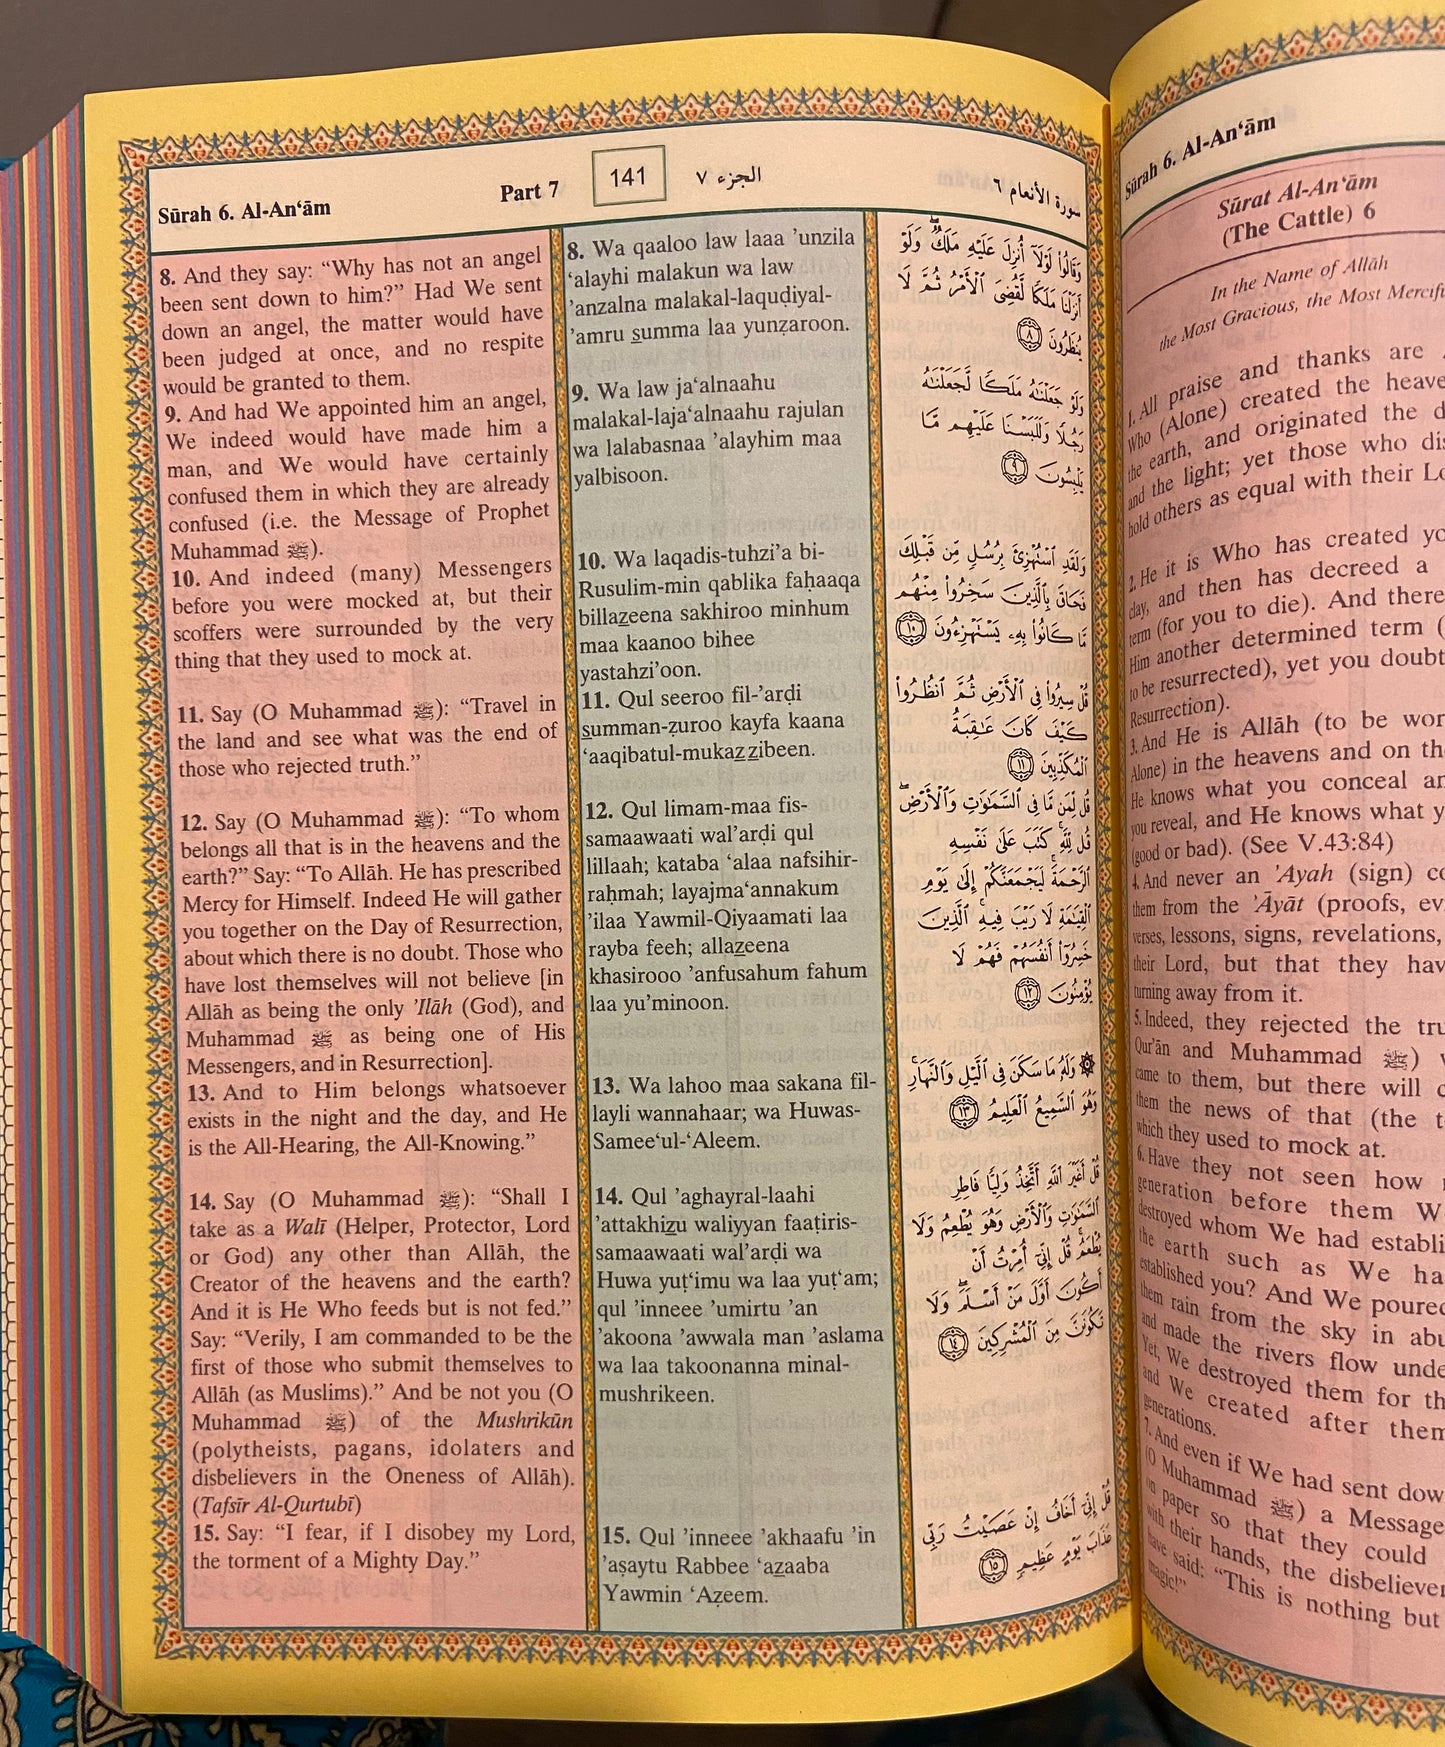 Sūrah 6. Al-An‘ām
Part 7
141
الجزء ٧
سورة الأنعام ٦
8. And they say: “Why has not an angel
been sent down to him?” Had We sent
down an angel, the matter would have
been judged at once, and no respite
would be granted to them.
9. And had We appointed him an angel,
We indeed would have made him a
man, and We would have certainly
confused them in which they are already
confused (i.e. the Message of Prophet
Muhammad ﷺ).
10. And indeed (many) Messengers
before you were mocked at, but their
scoffers were surrounded by the very
thing that they used to mock at.
11. Say (O Muhammad ﷺ): “Travel in
the land and see what was the end of
those who rejected truth.”
12. Say (O Muhammad ﷺ): “To whom
belongs all that is in the heavens and the
earth?” Say: “To Allāh. He has prescribed
Mercy for Himself. Indeed He will gather
you together on the Day of Resurrection,
about which there is no doubt. Those who
have lost themselves will not believe [in
Allāh as being the only ’Ilāh (God), and
Muhammad ﷺ as being one of His
Messengers, and in Resurrection].
13. And to Him belongs whatsoever
exists in the night and the day, and He
is the All-Hearing, the All-Knowing.”
14. Say (O Muhammad ﷺ): “Shall I
take as a Walī (Helper, Protector, Lord
or God) any other than Allāh, the
Creator of the heavens and the earth?
And it is He Who feeds but is not fed.”
Say: “Verily, I am commanded to be the
first of those who submit themselves to
Allāh (as Muslims).” And be not you (O
Muhammad ﷺ) of the Mushrikūn
(polytheists, pagans, idolaters and
disbelievers in the Oneness of Allāh).
(Tafsīr Al-Qurtubī)
15. Say: “I fear, if I disobey my Lord,
the torment of a Mighty Day.”
8. Wa qaaloo law laaa ’unzila
‘alayhi malakun wa law
’anzalna malakal-laquḍiyal-
’amru summa laa yunẓaroon.
9. Wa law ja‘alnaahu
malakal-laja‘alnaahu rajulan
wa lalabasnaa ’alayhim maa
yalbisoon.
10. Wa laqadis-tuhzi’a bi-
Rusulim-min qablika faḥaaqa
billazeena sakhiroo minhum
maa kaanoo bihee
yastahzi’oon.
11. Qul seeroo fil-’arḍi
summan-ẓuroo kayfa kaana
‘aaqibatul-mukazzibeen.
12. Qul limam-maa fis-
samaawaati wal’arḍi qul
lillaah; kataba ‘alaa nafsihir-
raḥmah; layajma‘annakum
’ilaa Yawmil-Qiyaamati laa
rayba feeh; allazeena
khasirooo ’anfusahum fahum
laa yu’minoon.
13. Wa lahoo maa sakana fil-
layli wannahaar; wa Huwas-
Samee‘ul-‘Aleem.
14. Qul ’aghayral-laahi
’attakhizu waliyyan faaṭiris-
samaawaati wal’arḍi wa
Huwa yuṭ‘imu wa laa yuṭ‘am;
qul ’inneee ’umirtu ’an
’akoona ’awwala man ’aslama
wa laa takoonanna minal-
mushrikeen.
15. Qul ’inneee ’akhaafu ’in
’aṣaytu Rabbee ‘azaaba
Yawmin ‘Aẓeem.
وَقَالُوا۟ لَوْلَآ أُنزِلَ عَلَيْهِ مَلَكٌۖ وَلَوْ
أَنزَلْنَا مَلَكًا لَّقُضِىَ ٱلْأَمْرُ ثُمَّ لَا
يُنظَرُونَ ٨
وَلَوْ جَعَلْنَـٰهُ مَلَكًا لَّجَعَلْنَـٰهُ
رَجُلًا وَلَلَبَسْنَا عَلَيْهِم مَّا
يَلْبِسُونَ ٩
وَلَقَدِ ٱسْتُهْزِئَ بِرُسُلٍ مِّن قَبْلِكَ
فَحَاقَ بِٱلَّذِينَ سَخِرُوا۟ مِنْهُم
مَّا كَانُوا۟ بِهِۦ يَسْتَهْزِءُونَ ١٠
قُلْ سِيرُوا۟ فِى ٱلْأَرْضِ ثُمَّ ٱنظُرُوا۟
كَيْفَ كَانَ عَـٰقِبَةُ
ٱلْمُكَذِّبِينَ ١١
قُل لِّمَن مَّا فِى ٱلسَّمَـٰوَٰتِ وَٱلْأَرْضِۖ
قُل لِّلَّهِۚ كَتَبَ عَلَىٰ نَفْسِهِ
ٱلرَّحْمَةَۚ لَيَجْمَعَنَّكُمْ إِلَىٰ يَوْمِ
ٱلْقِيَـٰمَةِ لَا رَيْبَ فِيهِۚ ٱلَّذِينَ
خَسِرُوٓا۟ أَنفُسَهُمْ فَهُمْ لَا
يُؤْمِنُونَ ١٢
۞ وَلَهُۥ مَا سَكَنَ فِى ٱلَّيْلِ وَٱلنَّهَارِۚ
وَهُوَ ٱلسَّمِيعُ ٱلْعَلِيمُ ١٣
قُلْ أَغَيْرَ ٱللَّهِ أَتَّخِذُ وَلِيًّا فَاطِرِ
ٱلسَّمَـٰوَٰتِ وَٱلْأَرْضِ وَهُوَ يُطْعِمُ وَلَا
يُطْعَمُۗ قُلْ إِنِّىٓ أُمِرْتُ أَنْ
أَكُونَ أَوَّلَ مَنْ أَسْلَمَۖ وَلَا
تَكُونَنَّ مِنَ ٱلْمُشْرِكِينَ ١٤
قُلْ إِنِّىٓ أَخَافُ إِنْ عَصَيْتُ رَبِّى
عَذَابَ يَوْمٍ عَظِيمٍ ١٥
Sūrah 6. Al-An‘ām
Sūrat Al-An‘ām
(The Cattle) 6
In the Name of Allāh
the Most Gracious, the Most
1. All praise and thanks are
Who (Alone) created the
the earth, and originated the
and the light; yet those who
hold others as equal with their
2. He it is Who has created
clay, and then has decreed a
term (for you to die). And
Him another determined term
to be resurrected), yet you
Resurrection).
3. And He is Allāh (to be
Alone) in the heavens and on
He knows what you conceal
you reveal, and He knows what
(good or bad). (See V.43:84)
4. And never an ’Ayah (sign)
them from the ’Āyāt (proofs,
verses, lessons, signs, revelations,
their Lord, but that they
turning away from it.
5. Indeed, they rejected the
Qur’ān and Muhammad ﷺ)
came to them, but there will
them the news of that (the
which they used to mock at.
6. Have they not seen how
generation before them
destroyed whom We had
the earth such as We
established you? And We
them rain from the sky in
and made the rivers flow
Yet, We destroyed them for
and We created after
generations.
7. And even if We had sent
(O Muhammad ﷺ) a
on paper so that they could
with their hands, the
have said: “This is nothing but
magic!”